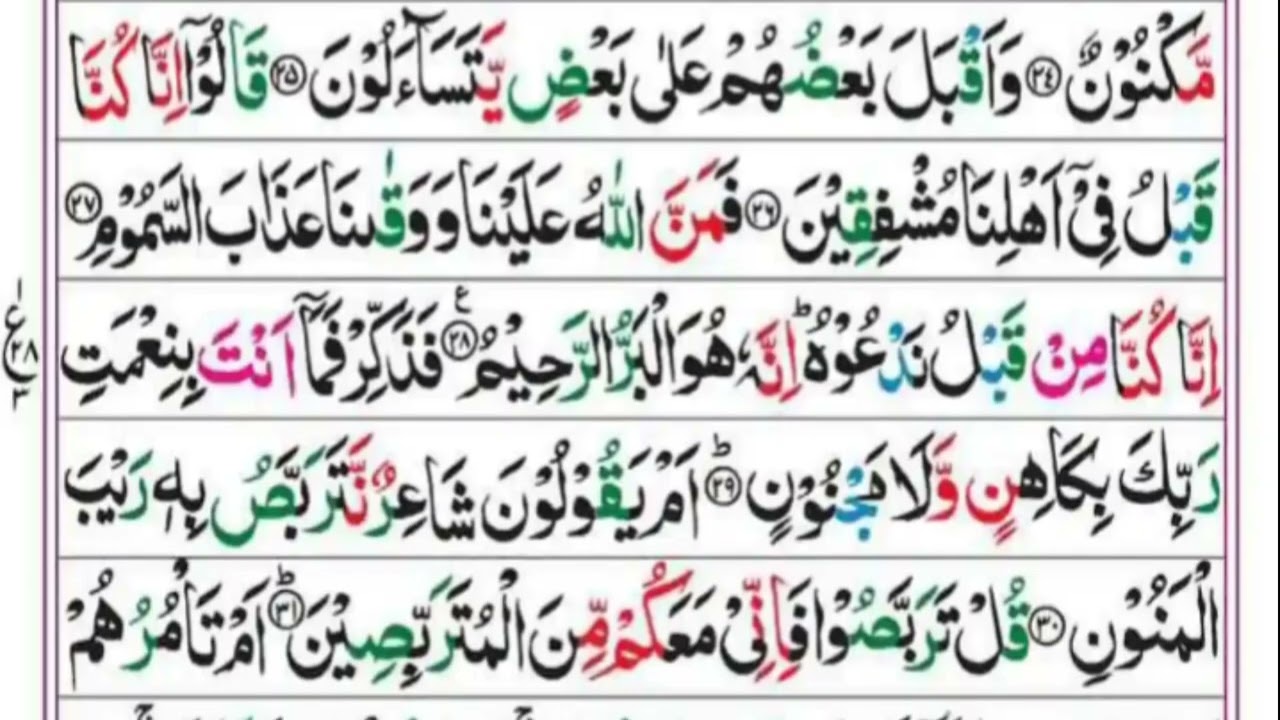 مَّكْنُوْنٌ ﴿۲۴﴾ وَاَقْبَلَ بَعْضُهُمْ عَلٰى بَعْضٍ يَّتَسَآءَلُوْنَ ﴿۲۵﴾ قَالُوْٓا اِنَّا كُنَّا
قَبْلُ فِيْٓ اَهْلِنَا مُشْفِقِيْنَ ﴿۲۶﴾ فَمَنَّ اللّٰهُ عَلَيْنَا وَوَقٰىنَا عَذَابَ السَّمُوْمِ ﴿۲۷﴾
اِنَّا كُنَّا مِنْ قَبْلُ نَدْعُوْهُ ؕ اِنَّهٗ هُوَ الْبَرُّ الرَّحِيْمُ ﴿۲۸﴾ ع فَذَكِّرْ فَمَآ اَنْتَ بِنِعْمَتِ
رَبِّكَ بِكَاهِنٍ وَّلَا مَجْنُوْنٍ ﴿۲۹﴾ؕ اَمْ يَقُوْلُوْنَ شَاعِرٌ نَّتَرَبَّصُ بِهٖ رَيْبَ
الْمَنُوْنِ ﴿۳۰﴾ قُلْ تَرَبَّصُوْا فَاِنِّيْ مَعَكُمْ مِّنَ الْمُتَرَبِّصِيْنَ ﴿۳۱﴾ؕ اَمْ تَاْمُرُهُمْ
۱ ع ۲۸ ۳